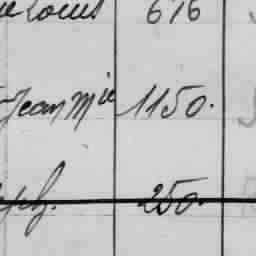 Louis 676
Jean Mie 1150.
ph. 250.